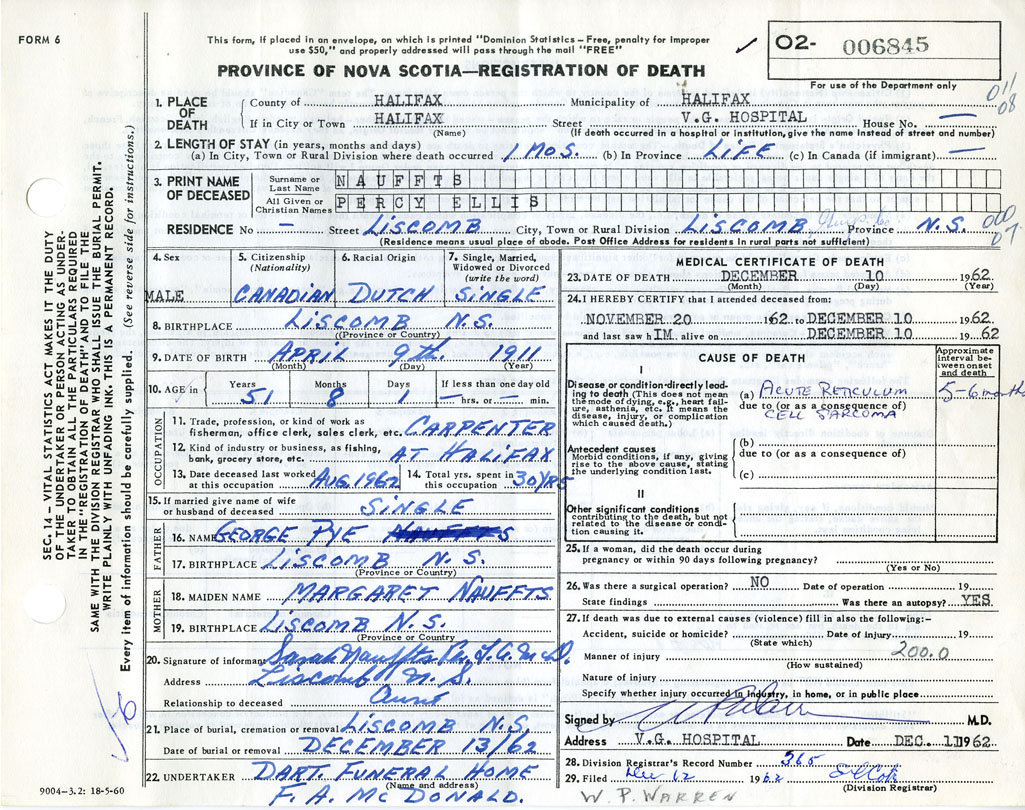 FORM 6
This form, if placed in an envelope, on which is printed "Dominion Statistics – Free, penalty for improper
use $50," and properly addressed will pass through the mail "FREE"
PROVINCE OF NOVA SCOTIA—REGISTRATION OF DEATH
✓ 02- 006845
For use of the Department only
011
08
1. PLACE OF DEATH County of HALIFAX Municipality of HALIFAX
If in City or Town HALIFAX Street V.G. HOSPITAL House No. —
(Name) (If death occurred in a hospital or institution, give the name Instead of street and number)
2. LENGTH OF STAY (in years, months and days)
(a) In City, Town or Rural Division where death occurred 1 MOS. (b) In Province LIFE (c) In Canada (if immigrant) —
3. PRINT NAME OF DECEASED Surname or Last Name NAUFFTS
All Given or Christian Names PERCY ELLIS
RESIDENCE No – Street LISCOMB City, Town or Rural Division LISCOMB Province N.S.
(Residence means usual place of abode. Post Office Address for residents in rural parts not sufficient)
4. Sex MALE
5. Citizenship (Nationality) CANADIAN
6. Racial Origin DUTCH
7. Single, Married, Widowed or Divorced (write the word) SINGLE
8. BIRTHPLACE LISCOMB N.S.
(Province or Country)
9. DATE OF BIRTH APRIL 9th. 1911
(Month) (Day) (Year)
10. AGE in Years 51 Months 8 Days 1 If less than one day old — hrs. or — min.
OCCUPATION
11. Trade, profession, or kind of work as fisherman, office clerk, sales clerk, etc. CARPENTER
12. Kind of industry or business, as fishing, bank, grocery store, etc. AT HALIFAX
13. Date deceased last worked at this occupation AUG. 1962 14. Total yrs. spent in this occupation 30 YRS
15. If married give name of wife or husband of deceased SINGLE
FATHER
16. NAME GEORGE PYE
17. BIRTHPLACE LISCOMB N.S.
(Province or Country)
MOTHER
18. MAIDEN NAME MARGARET NAUFFTS
19. BIRTHPLACE LISCOMB N.S.
(Province or Country)
20. Signature of informant Sarah Nauffts
Address Liscomb N.S.
Relationship to deceased Aunt
21. Place of burial, cremation or removal LISCOMB N.S.
Date of burial or removal DECEMBER 13/62
22. UNDERTAKER DART. FUNERAL HOME
(Name and address)
F. A. McDONALD.
MEDICAL CERTIFICATE OF DEATH
23. DATE OF DEATH DECEMBER 10 1962
(Month) (Day) (Year)
24. I HEREBY CERTIFY that I attended deceased from:
NOVEMBER 20 1962 to DECEMBER 10 1962
and last saw hIM. alive on DECEMBER 10 1962
CAUSE OF DEATH
Approximate interval between onset and death
I
Disease or condition directly leading to death (This does not mean the mode of dying, e.g., heart failure, asthenia, etc. It means the disease, injury, or complication which caused death.)
(a) ACUTE RETICULUM 5-6 months
due to (or as a consequence of)
CELL SARCOMA
Antecedent causes
Morbid conditions, if any, giving rise to the above cause, stating the underlying condition last.
(b)
due to (or as a consequence of)
(c)
II
Other significant conditions
contributing to the death, but not related to the disease or condition causing it.
25. If a woman, did the death occur during pregnancy or within 90 days following pregnancy?
(Yes or No)
26. Was there a surgical operation? NO Date of operation 19
State findings Was there an autopsy? YES
27. If death was due to external causes (violence) fill in also the following:–
Accident, suicide or homicide? Date of injury 19
(State which)
Manner of injury 200.0
(How sustained)
Nature of injury
Specify whether injury occurred in Industry, in home, or in public place
Signed by M.D.
Address V.G. HOSPITAL Date DEC. 11 1962
28. Division Registrar's Record Number 365
29. Filed Dec 12 1962
(Division Registrar)
W. P. WARREN
SEC. 14 – VITAL STATISTICS ACT MAKES IT THE DUTY
OF THE UNDERTAKER OR PERSON ACTING AS UNDER-
TAKER TO OBTAIN ALL THE PARTICULARS REQUIRED
IN THE "REGISTRATION OF DEATH" AND TO FILE THE
SAME WITH THE DIVISION REGISTRAR WHO SHALL ISSUE THE BURIAL PERMIT.
WRITE PLAINLY WITH UNFADING INK. THIS IS A PERMANENT RECORD.
Every item of information should be carefully supplied. (See reverse side for instructions.)
9004–3.2: 18-5-60